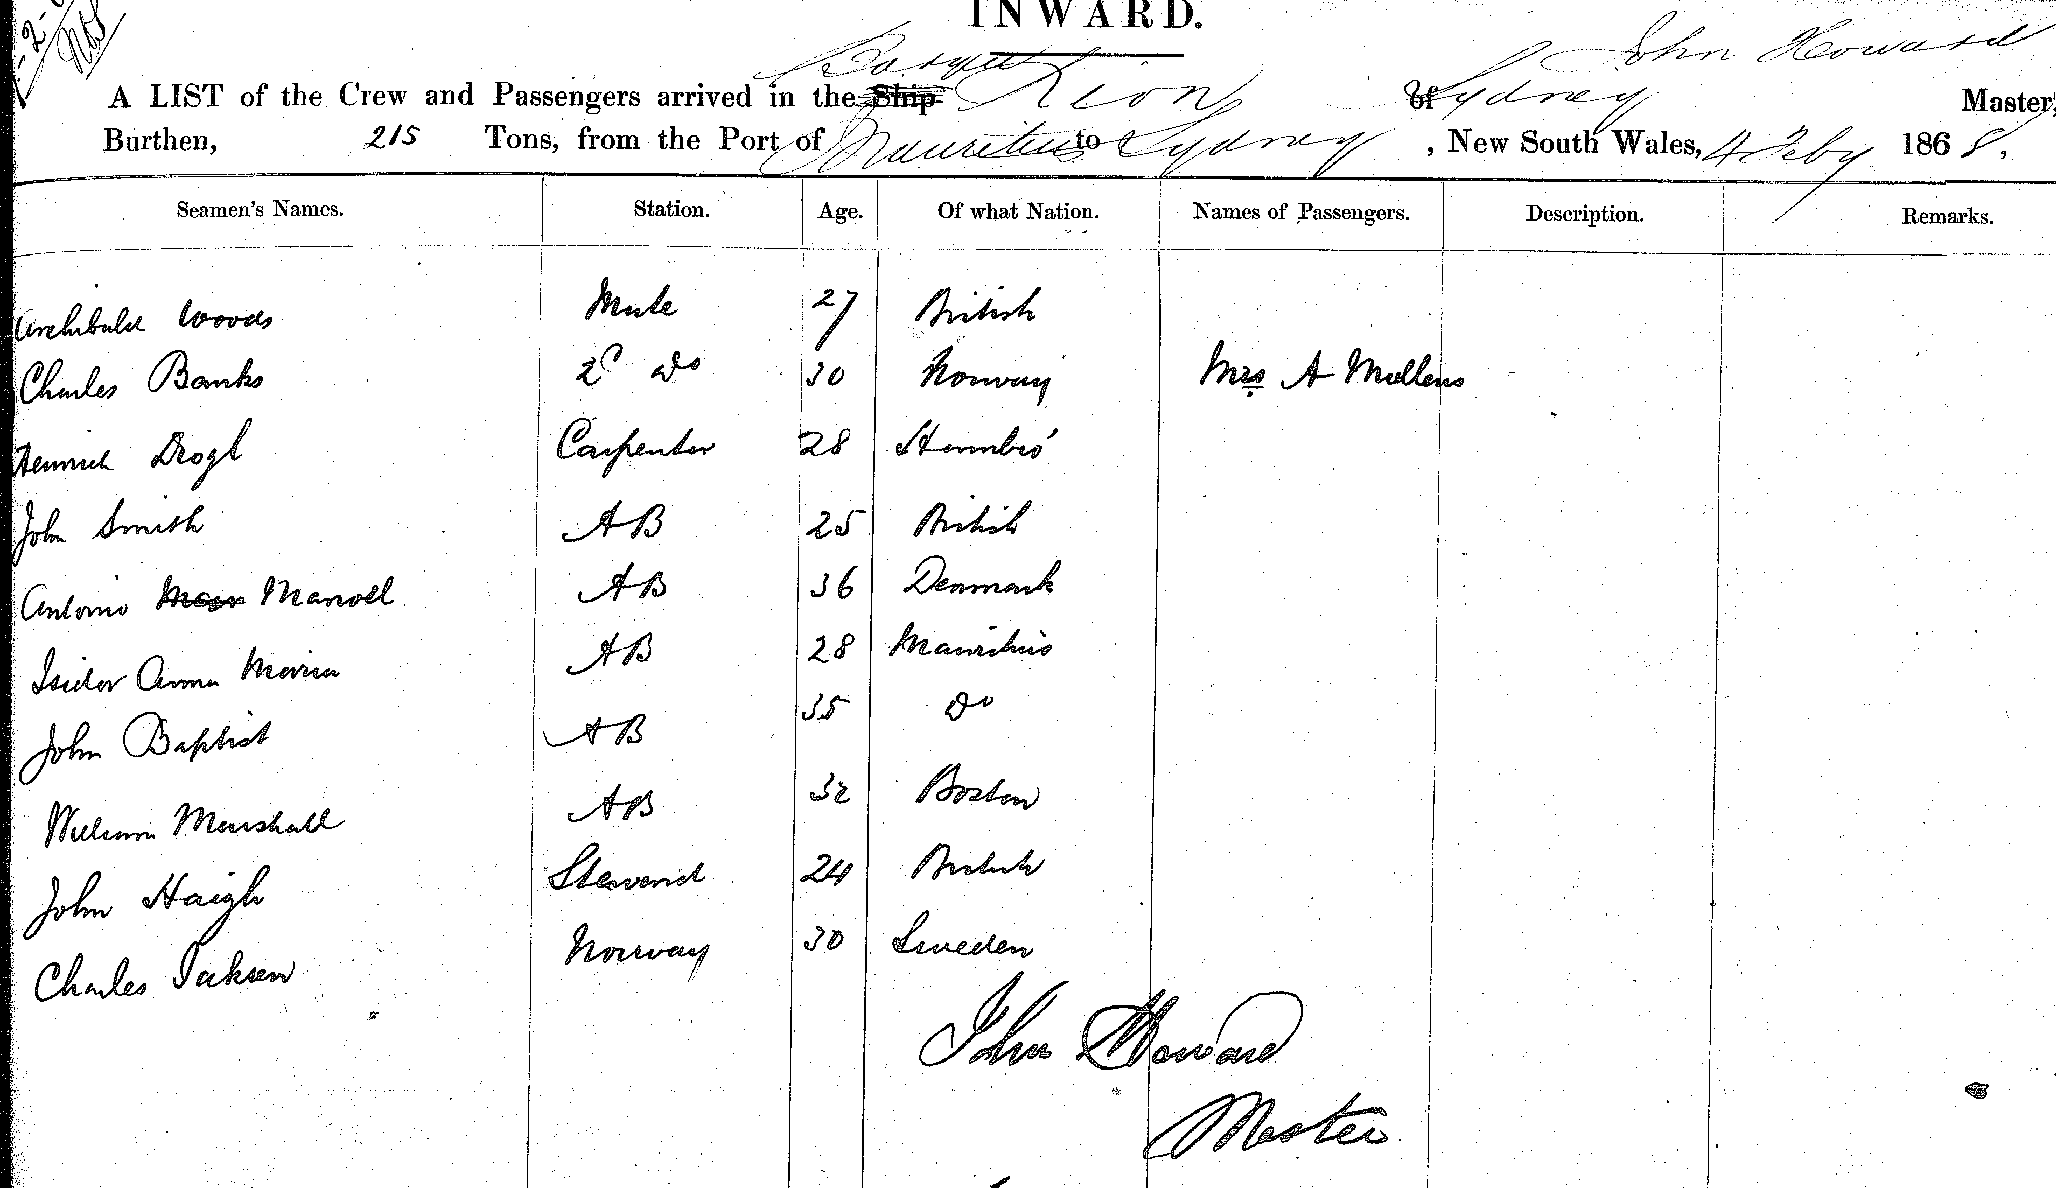 INWARD.
Barque John Howard
A LIST of the Crew and Passengers arrived in the Ship of Sydney Master,
Burthen, 215 Tons, from the Port of Mauritius to Sydney, New South Wales, 4 Feby 1868.
Seamen's Names. Station. Age. Of what Nation. Names of Passengers. Description. Remarks.
Archibald Woods Mate 27 British
Charles Banks 2d Do 30 Norway Mrs A Mullens
Heinrich Carpenter 28 Hambro'
John Smith AB 25 British
Antonio Manoell AB 36 Denmark
Isidor Anna Maria AB 28 Mauritius
John Baptist AB 35 Do
William Marshall AB 32 Boston
John Haigh Steward 24 British
Charles Jacksen Norway 30 Sweden
John Howard
Master